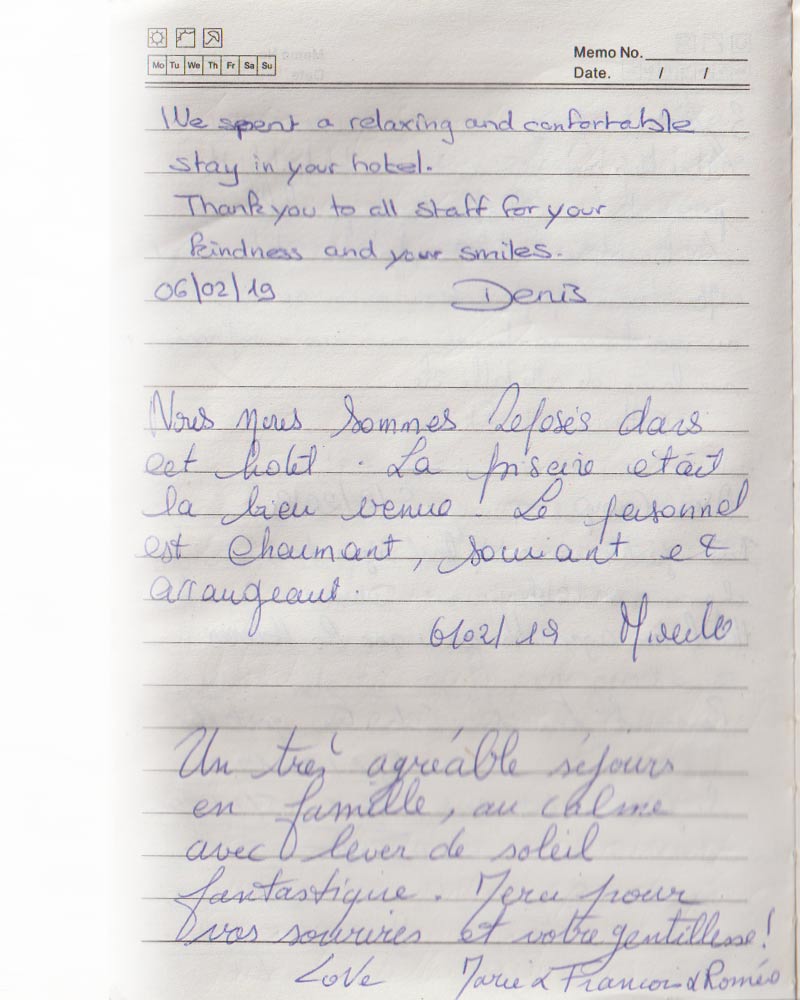 Mo Tu We Th Fr Sa Su
Memo No.
Date. / /
We spent a relaxing and confortable
stay in your hotel.
Thank you to all staff for your
kindness and your smiles.
06/02/19 Denis
Nous nous sommes reposés dans
cet hotel. La piscine était
la bien venue. Le personnel
est charmant, souriant et
arrangeant.
6/02/19
Un très agréable séjours
en famille, au calme
avec lever de soleil
fantastique. Merci pour
vos sourires et votre gentillesse!
Love Marie & Francois & Roméo